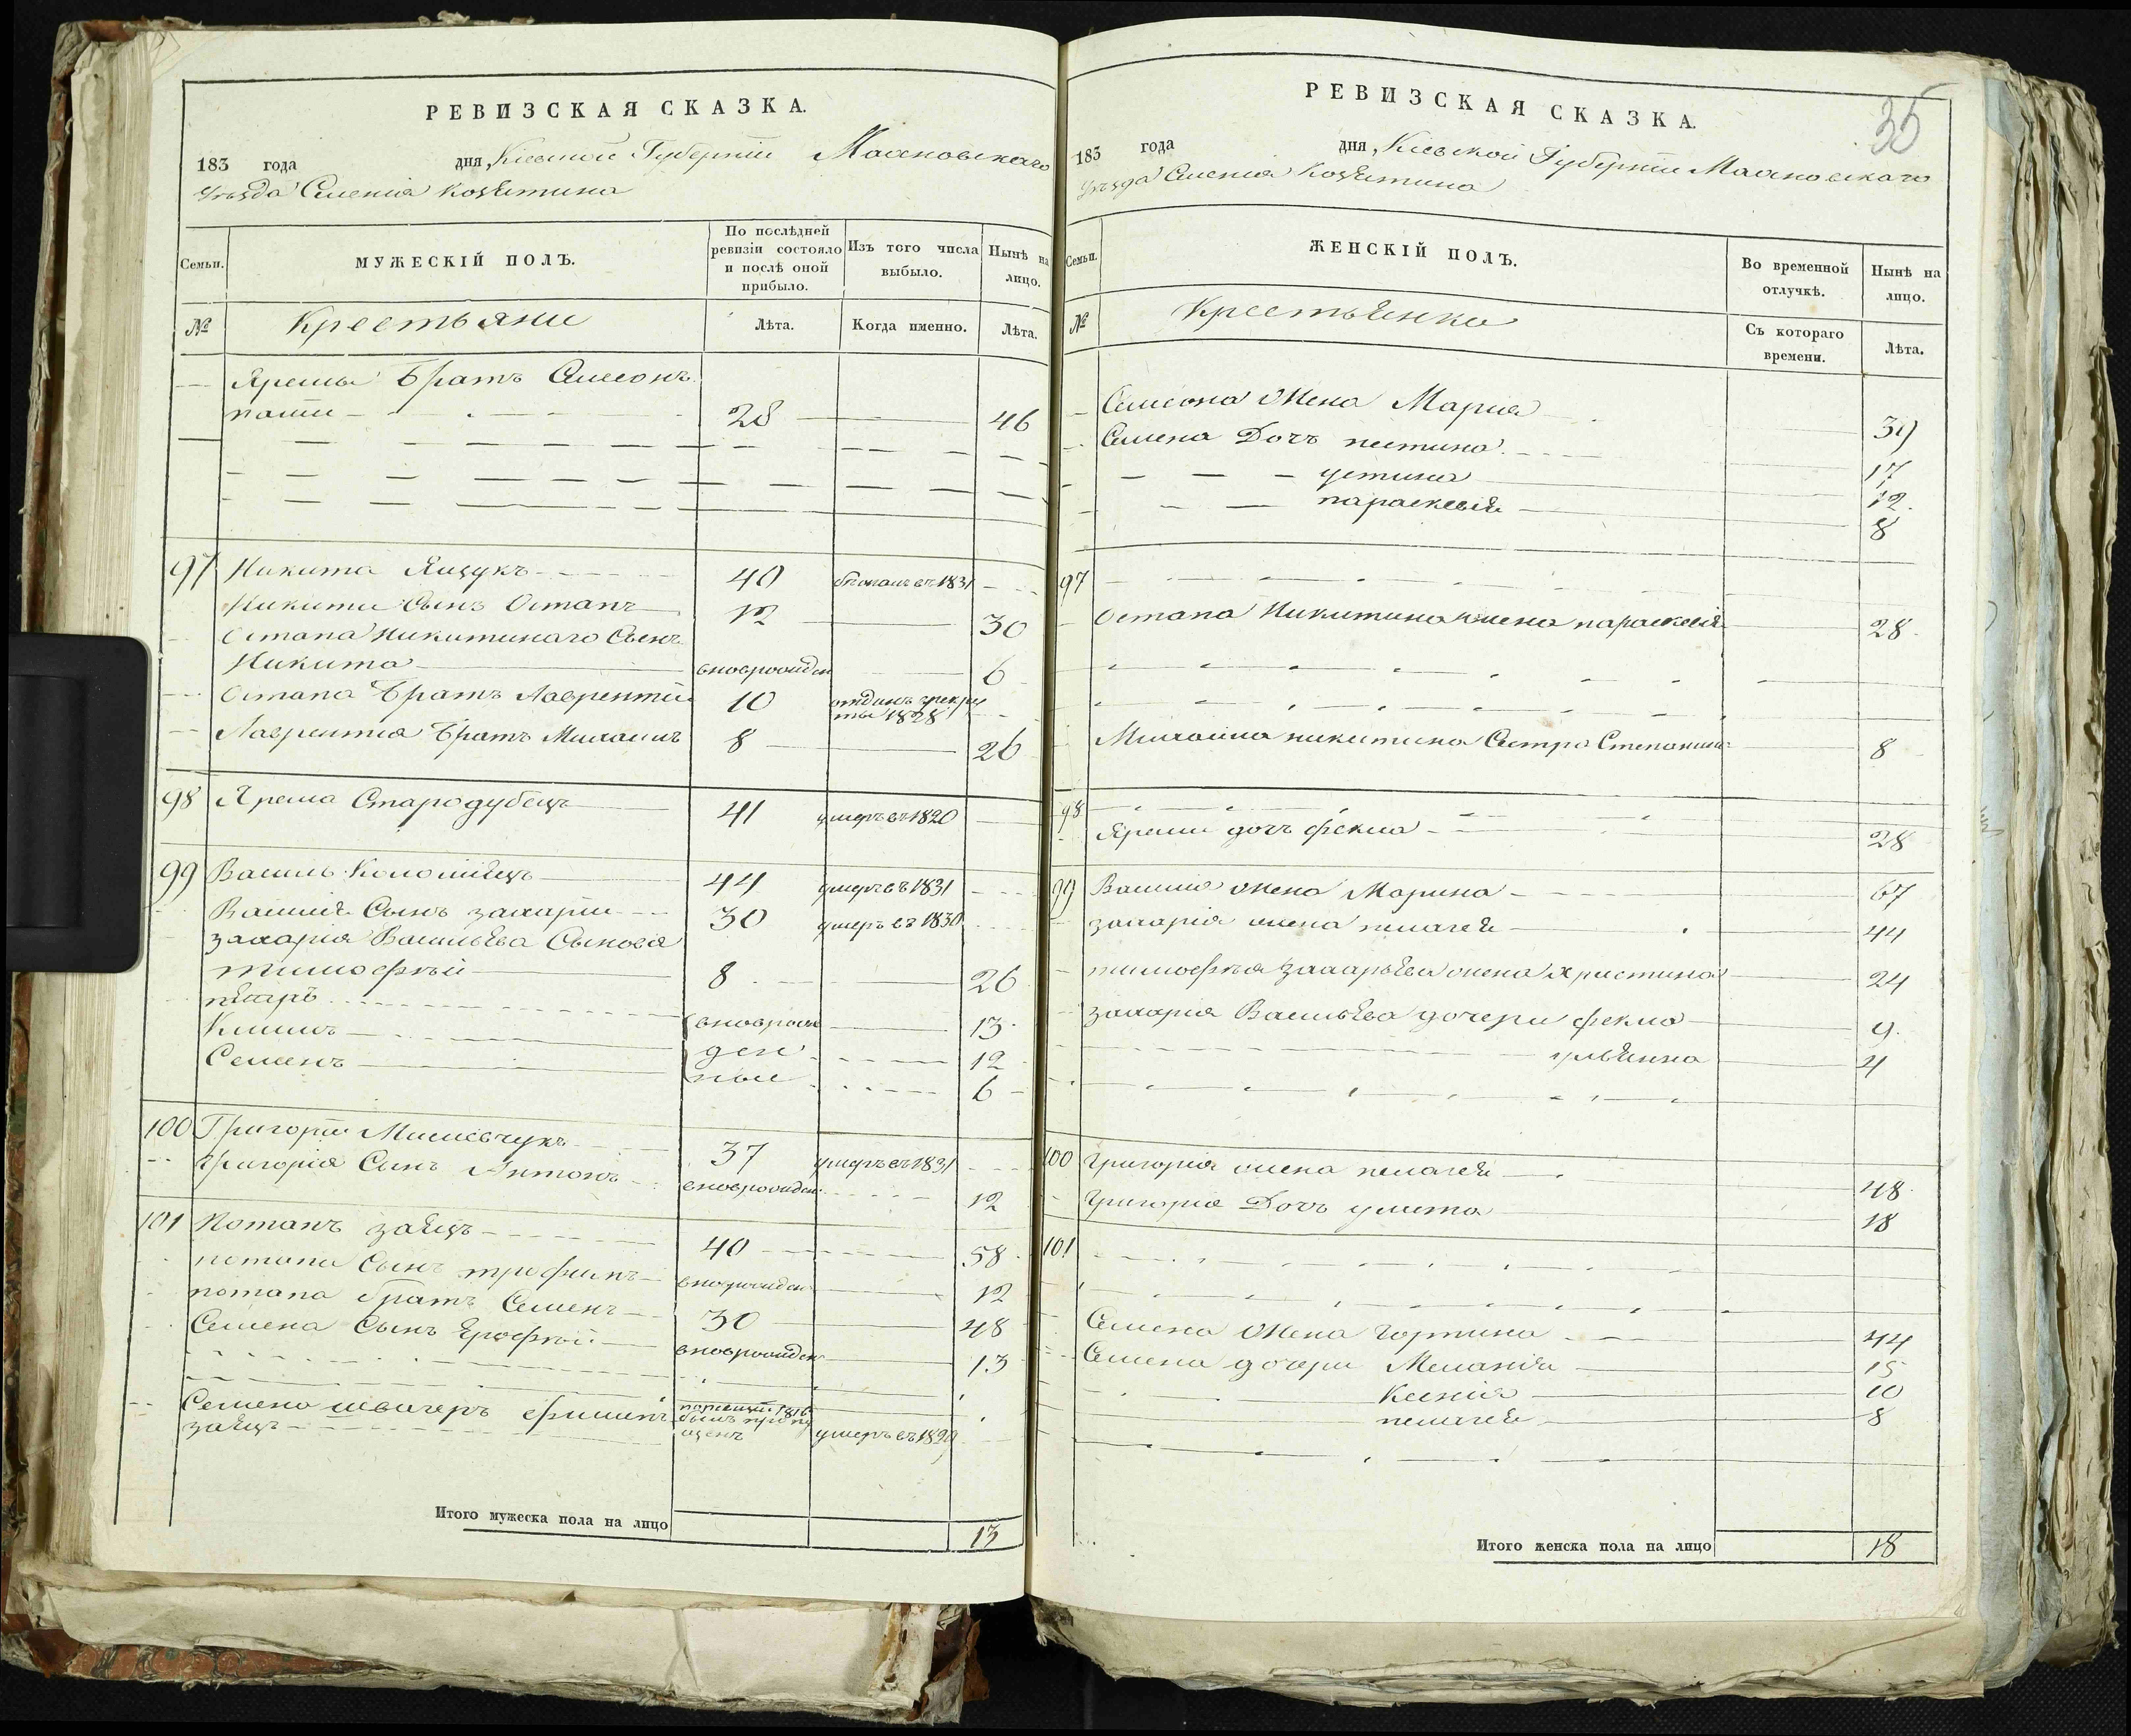 РЕВИЗСКАЯ СКАЗКА.
183 года дня, Кіевской Губерніи Махновскаго
уѣзда Селенія Козятина
Семьи.
МУЖЕСКІЙ ПОЛЪ.
По послѣдней ревизіи состояло и послѣ оной прибыло.
Изъ того числа выбыло.
Нынѣ на лицо.
№ Крестьяни Лѣта. Когда именно. Лѣта.
Яремы Братъ Симеонъ
28 46
97 Никита Яцукъ 40 1831
Никити Сынъ Остапъ 12 30
Остапа Никитинаго Сынъ
Никита вноврожден 6
Остапа Братъ Лаврентій 10 отданъ в рекру
ты 1828
Лаврентія Братъ Михаилъ 8 26
98 Ярема Стародубецъ 41 умеръ въ 1820
99 Василь Коломіецъ 44 умеръ въ 1831
Василія Сынъ захарій 30 умеръ въ 1830
захарія Васильева Сыновя
тимофѣй 8 26
пётръ вноврож 13
Климъ ден 12
Семенъ ные 6
100 Григорій Мисевчукъ 37 умеръ въ 1831
Григорія Сынъ Антонъ вноврожден 12
101 Потапъ заецъ 40 58
потапа Сынъ трофимъ вноврожден 12
потапа братъ Семенъ 30 48
Семена Сынъ Ерофѣй вноврожден 13
Семена швагеръ ефимъ 1816 былъ пропу
заецъ щенъ умеръ въ 1829
Итого мужеска пола на лицо 13
35
РЕВИЗСКАЯ СКАЗКА.
183 года дня, Кіевской Губерніи Махновскаго
уѣзда Селенія Козятина
Семьи.
ЖЕНСКІЙ ПОЛЪ.
Во временной отлучкѣ.
Нынѣ на лицо.
№ Крестьянки Съ котораго времени. Лѣта.
Симеона Жена Марія 39
Семена Дочъ пестина 17
устина 12
параскевія 8
97
Остапа Никитина жена параскевія 28
Михайла никитина Сестра Степанида 8
98
Яреми дочъ фекла 28
99 Василія жена Марина 67
захарія жена пелагея 44
тимофѣя Захарьева жена христина 24
захарія Васильева дочери фекла 9
ульянна 4
100 Григорія жена пелагея 48
Григорія Дочъ улита 18
101
Семена Жена Горпина 44
Семена дочери Меланія 15
Ксенія 10
пелагея 8
Итого женска пола на лицо 18